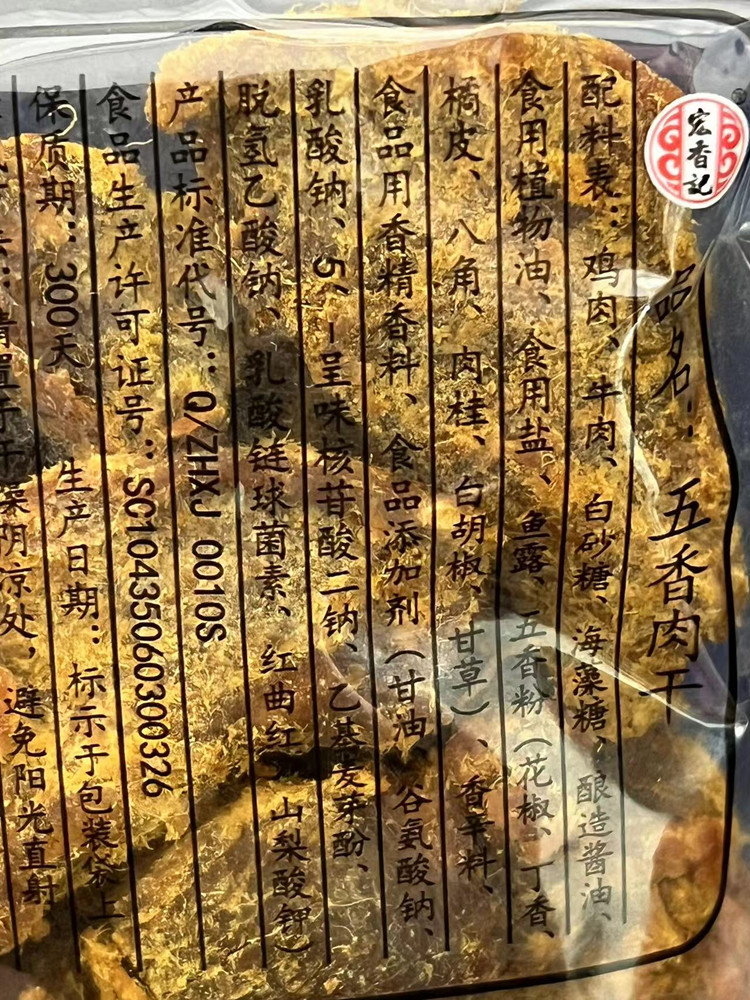 宏香記
品名：五香肉干
配料表：鸡肉、牛肉、白砂糖、海藻糖、酿造酱油、
食用植物油、食用盐、鱼露、五香粉（花椒、丁香、
橘皮、八角、肉桂、白胡椒、甘草）、香辛料、
食品用香精香料、食品添加剂（甘油、谷氨酸钠、
乳酸钠、5'-呈味核苷酸二钠、乙基麦芽酚、
脱氢乙酸钠、乳酸链球菌素、红曲红、山梨酸钾）
产品标准代号：Q/ZHXJ 0010S
食品生产许可证号：SC10435060300326
保质期：300天 生产日期：标示于包装袋上
请置于干燥阴凉处，避免阳光直射